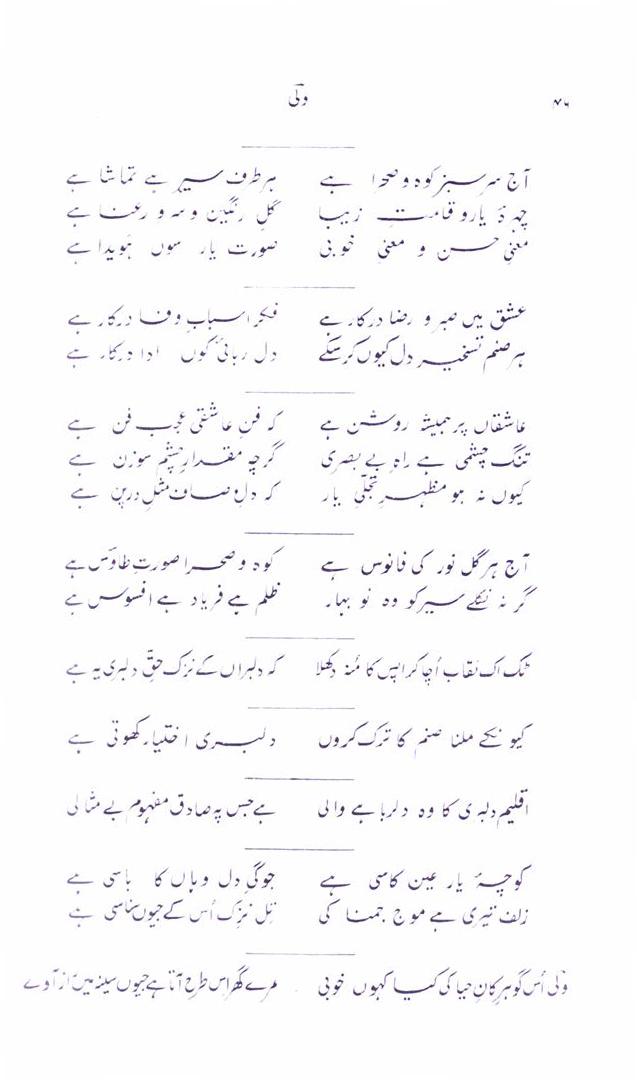 ۷۶ ولیؔ
آج سرسبز کوہ و صحرا ہے ہر طرف سیر ہے تماشا ہے
چہرۂ یار و قامتِ زیبا گلِ رنگین و سرو رعنا ہے
معنیِ حسن و معنیِ خوبی صورت یار سوں ہویدا ہے
عشق میں صبر و رضا درکار ہے فکر اسبابِ وفا درکار ہے
ہر صنم تسخیر دل کیوں کر سکے دل ربائی کوں ادا درکار ہے
عاشقاں پر ہمیشہ روشن ہے کہ فنِ عاشقی عجب فن ہے
تنگ چشمی ہے راہِ بے بصری گرچہ مقدارِ چشم سوزن ہے
کیوں نہ ہو مظہرِ تجلّیِ یار کہ دلِ صاف مثلِ درپن ہے
آج ہر گل نور کی فانوس ہے کوہ و صحرا صورتِ طاؤس ہے
گر نہ نکلے سیر کو وہ نو بہار ظلم ہے فریاد ہے افسوس ہے
ٹک اک نقاب اُچا کر اپس کا مُنہ دکھلا کہ دلبراں کے نزک حقِّ دلبری یہ ہے
کیونکے ملنا صنم کا ترک کروں دلبری اختیار کھوتی ہے
اقلیم دلبری کا وہ دلربا ہے والی ہے جس پہ صادق مفہوم بے مثالی
کوچۂ یار عین کاسی ہے جوگیِ دل وہاں کا باسی ہے
زلف تیری ہے موج جمنا کی تِل نزک اُس کے جیوں سناسی ہے
ولیؔ اُس گوہرِ کانِ حیا کی کیا کہوں خوبی مرے گھر اس طرح آتا ہے جیوں سینے میں راز آوے